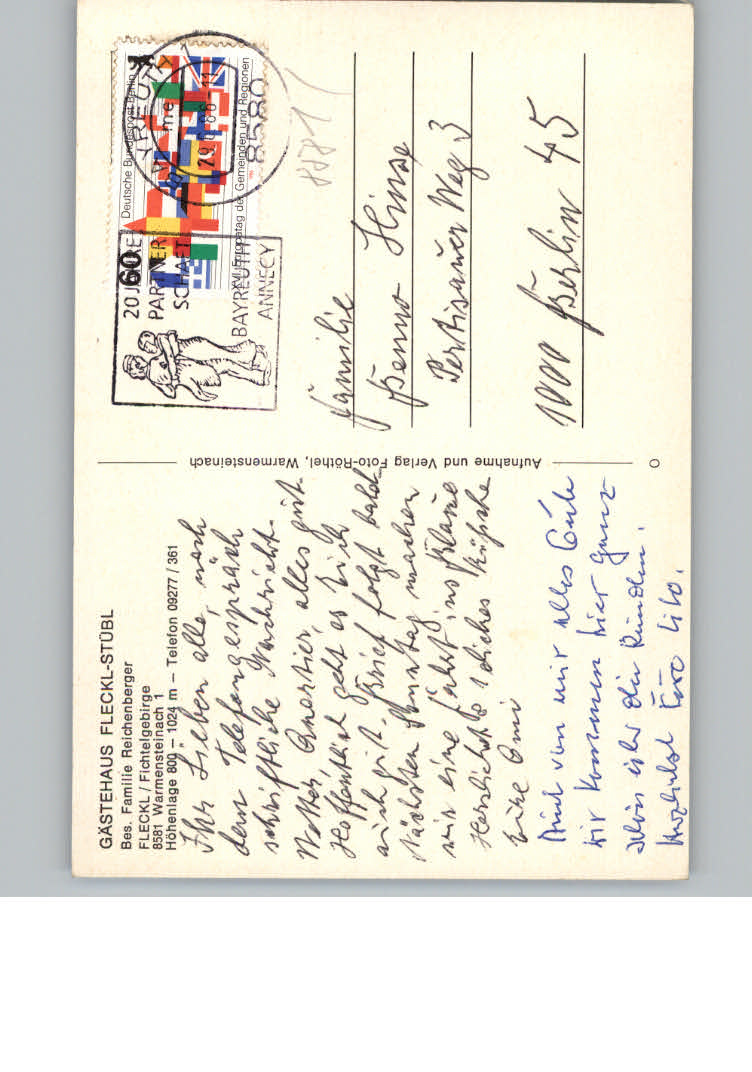 GÄSTEHAUS FLECKL-STÜBL
Bes. Familie Reichenberger
FLECKL / Fichtelgebirge
8581 Warmensteinach 1
Höhenlage 800 – 1024 m – Telefon 09277 / 361
Ihr Lieben alle, nach
dem Telefongespräch
schriftliche Nachricht.
Wetter, Quartier, alles gut.
Hoffentlich geht es Euch
auch gut. Brief folgt bald.
Nächsten Sonntag machen
wir eine Fahrt ins Blaue
Herzlichst
Eure Omi
Auch von mir alles Gute
wir kommen hier ganz
schön über die Runden.
Herzlichst Eure Lilo.
Aufnahme und Verlag Foto-Röthel, Warmensteinach
Deutsche Bundespost Berlin
60
XVI. Europatag der Gemeinden und Regionen
8580
20 JAHRE
PARTNER
SCHAFT
BAYREUTH
ANNECY
Familie
Benno Hinse
Pertisauer Weg 3
1000 Berlin 45